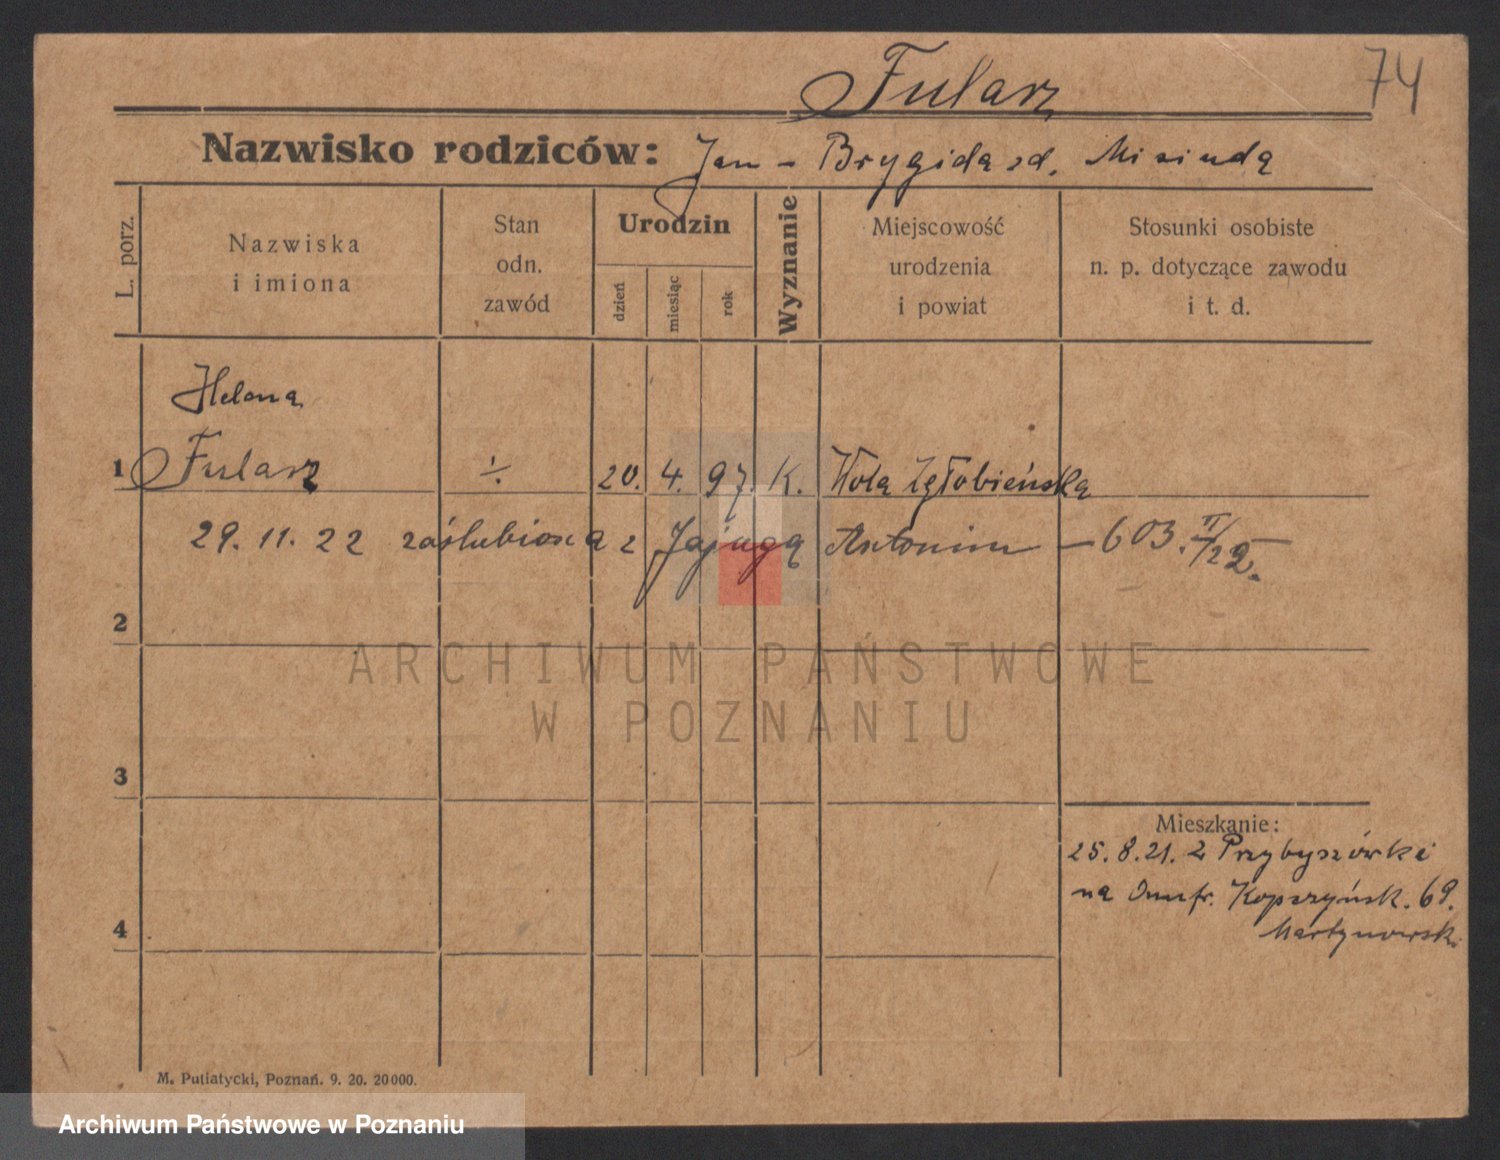 Fularz
74
Nazwisko rodziców: Jan - Brygida zd. Misiuda
L. porz.
Nazwiska
i imiona
Stan
odn.
zawód
Urodzin
dzień
miesiąc
rok
Wyznanie
Miejscowość
urodzenia
i powiat
Stosunki osobiste
n. p. dotyczące zawodu
i t. d.
Helena
1 Fularz ÷ 20. 4. 97. K. Wola Zgłobieńska
29. 11. 22 zaślubiona z Jajugą Antonim — 603. II/22. —
2
ARCHIWUM PAŃSTWOWE
W POZNANIU
3
Mieszkanie:
25. 8. 21. z Przybyszówki
na Onufr. Kopczyńsk. 69.
Martynowski
4
M. Putiatycki, Poznań. 9. 20. 20000.
Archiwum Państwowe w Poznaniu